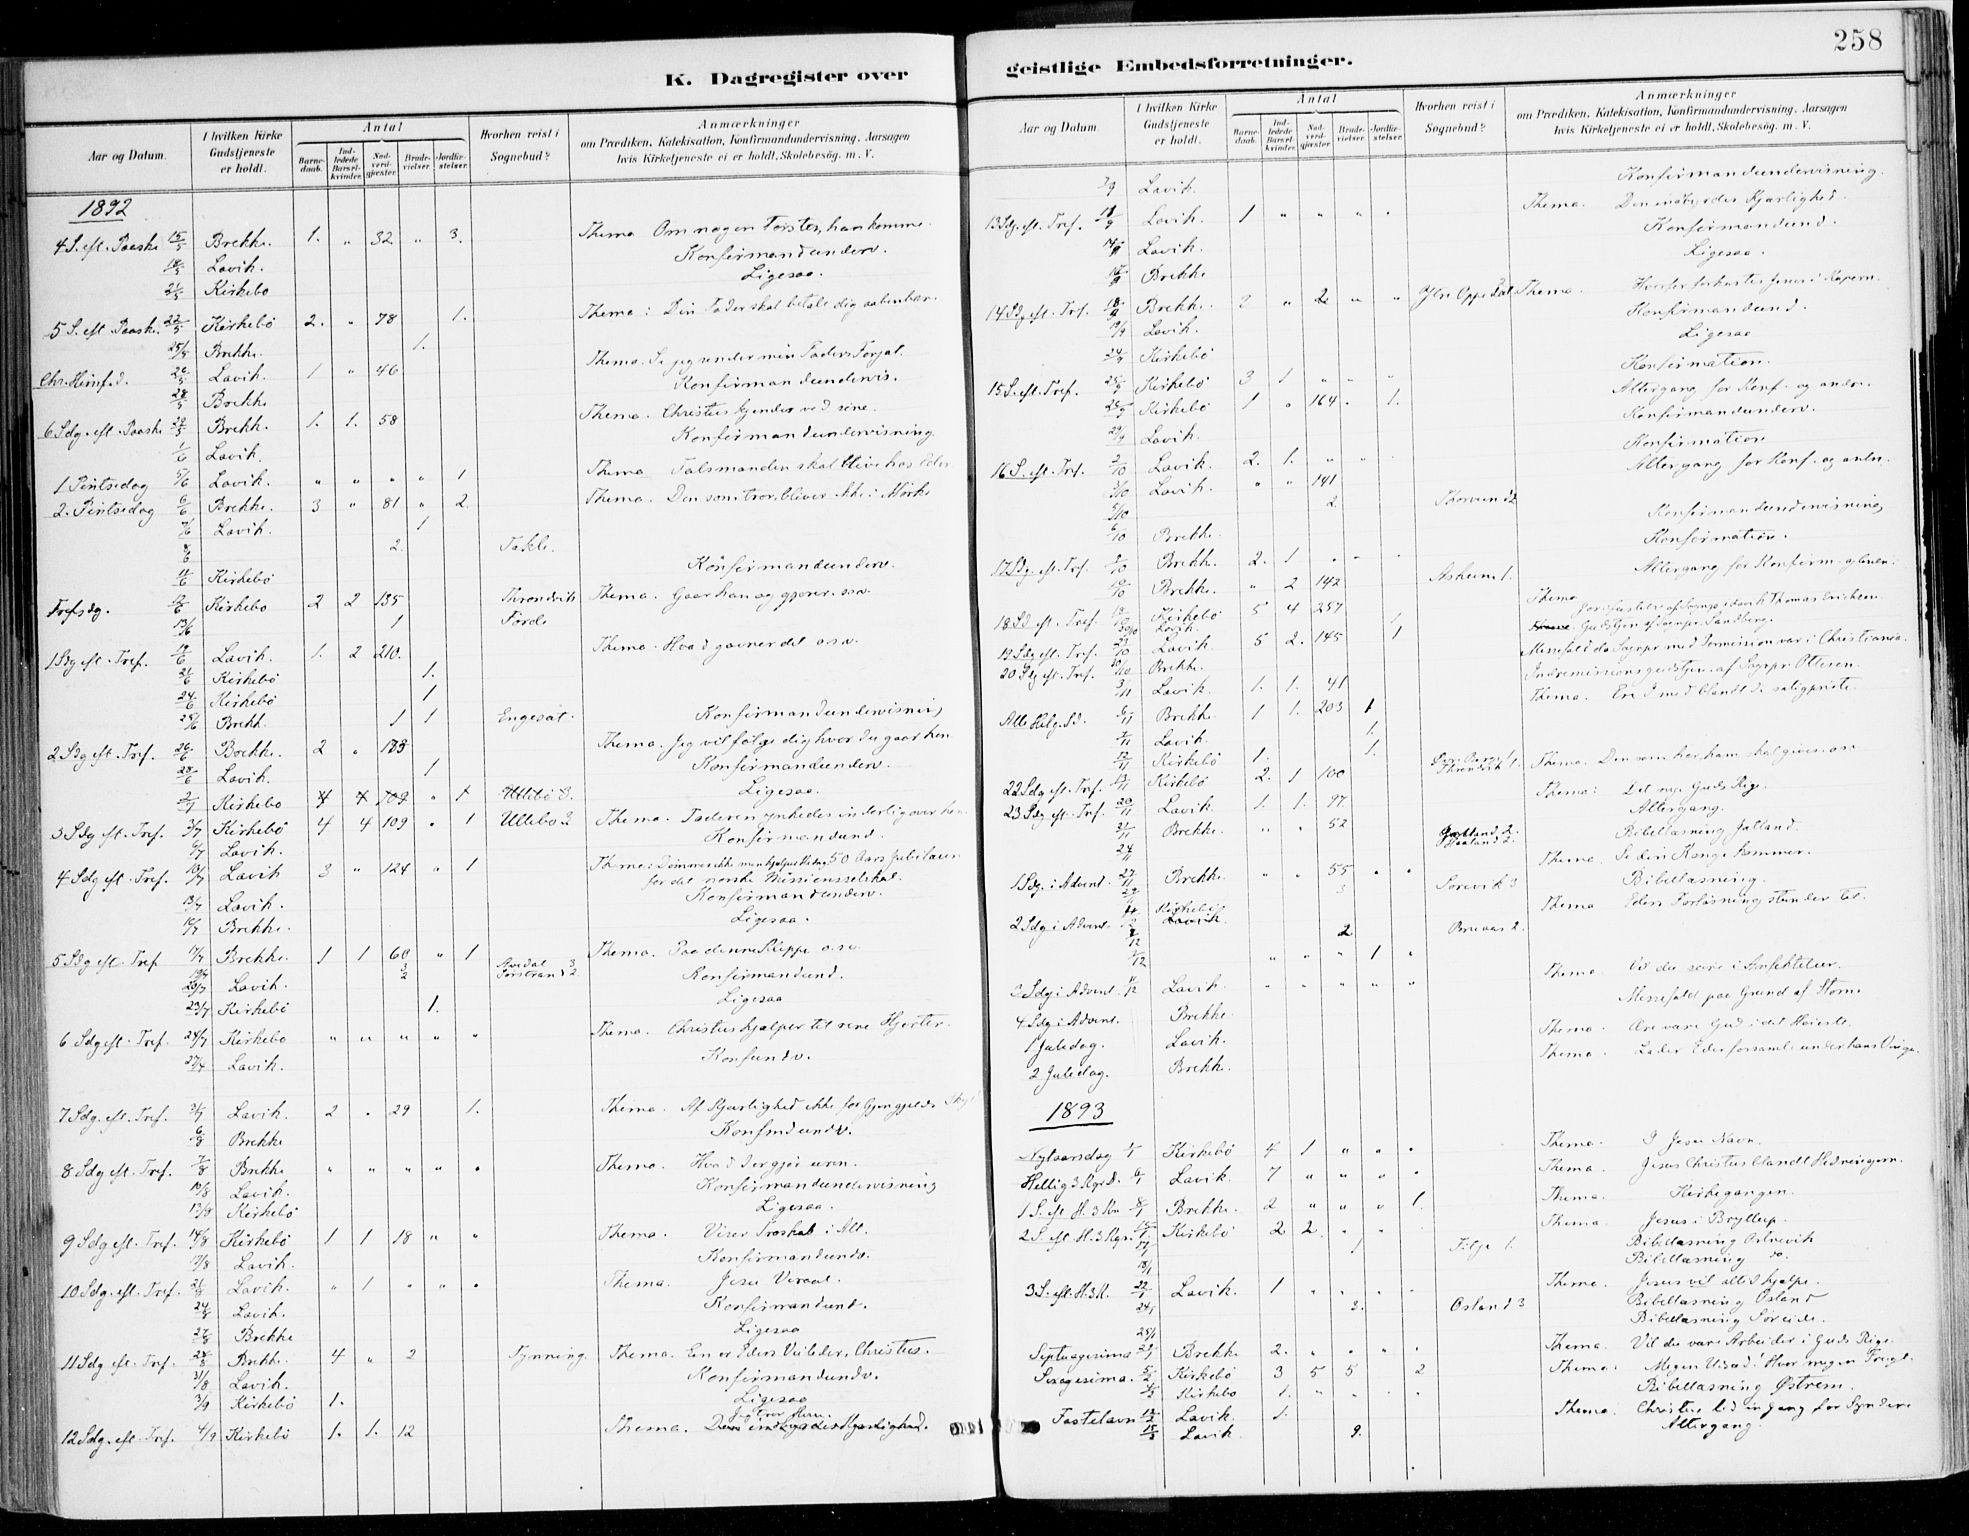 258
K. Dagregister over
geistlige Embedsforretninger.
Aar og Datum.
I hvilken Kirke Gudstjeneste er holdt.
Antal
Barnedaab.
Indledede Barselkvinder.
Nadverdgjæster.
Brudevielser.
Jordfæstelser.
Hvorhen reist i Sognebud?
Anmærkninger
om Prædiken, Katekisation, Konfirmandundervisning, Aarsagen
hvis Kirketjeneste ei er holdt, Skolebesøg. m. V.
1892
4 S. eft. Paaske 15/5 Brekke. 1. " 32 " 3. Thema Om nogen Tørster, han komme.
18/5 Lavik. Konfirmandunderv.
21/5 Kirkebø Ligesaa.
5 S. eft. Paaske. 22/5 Kirkebø 2. " 78 1. Thema: Din Fader skal betale dig aabenbar.
25/5 Brekke. 1.
Chr. Himf. d. 26/5 Lavik. 1 " 46 Thema. Se jeg sender min Faders Forjæt.
28/5 Brekke Konfirmandundervis.
6 Sdg. eft. Paaske 29/5 Brekk. 1. 1. 58 Thema. Christus kjender ved sine.
1/6 Lavik. Konfirmandundervisning.
1 Pintsedag 5/6 Lavik. " " " " 1 Thema Talsmanden skal blive hos Eder
2. Pintsedag 6/6 Brekke. 3 " 81 " 2. Thema. Den som tror, bliver ikke i Mørke
7/6 Lavik. 1
8/6 2. Takle.
11/6 Kirkebø Konfirmandunderv.
Trefsdg. 12/6 Kirkebø 2 2 135 Throndvik Thema. Gaar han og gjører. osv.
13/6 1 Førde
1 Sdg eft. Tref. 19/6 Lavik. 1. 2 210. Thema. Hvad gavner det osv.
21/6 Kirkebø 1.
24/6 Kirkebø 1
25/6 Brekk. 1 1 Engesæt. Konfirmandundervisning
2 Sdg eft. Tref. 26/6 Brekke. 2 " 183 Thema. Jeg vil følge dig hvor du gaar hen
28/6 Lavik. 1 Konfirmandunderv.
2/7 Kirkebø 4 4 109 " 1 Utlebø 3. Ligesaa.
3 Sdg eft. Tref. 3/7 Kirkebø 4 4 109 " 1 Utlebø 2 Thema. Faderen ynkedes inderlig over ham
6/7 Lavik. Konfirmandund.
4 Sdg eft. Tref. 10/7 Lavik 3 " 124 " 1 Thema: Dømmer ikke men hjælper Hedng. 50 Aars Jubilæum
for det norske Missionsselskab.
13/7 Lavik. Konfirmandunderv.
16/7 Brekke. Ligesaa.
5 Sdg eft. Tref 17/7 Brekke. 1 1 60 " 1 Thema. Paa denne Klippe osv.
19/7 3 2 Avedal 3 Torstrand 2
20/7 Lavik. Konfirmandund.
23/7 Kirkebø 1. Ligesaa
6 Sdg eft. Tref. 24/7 Kirkebø " " " " " Thema. Christus hjælper til rene Hjerter.
27/7 Lavik. Konfundv.
7 Sdg. eft. Tref. 31/7 Lavik. 2 . 29 1. Thema. Af Kjærlighed ikke for Gjengjelds Skyld
6/8 Brekke Konfmdundv.
8 Sdg. eft. Tref. 7/8 Brekke " " " " " Thema. Hvad der gjør uren.
10/8 Lavik. Konfirmandundervisning
13/8 Kirkebø Ligesaa.
9 Sdg eft. Tref. 14/8 Kirkebø 1 1 18 " " Thema. Viser Troskab i Alt.
17/8 Lavik. Konfirmandundv.
10 Sdg. eft. Tref. 21/8 Lavik. " 1 " " " Thema. Jesu Veraab.
24/8 Lavik. Konfirmandund.
27/8 Brekke Ligesaa
11 Sdg eft. Tref. 28/8 Brekke. 4 " 2 Tynning. Thema. En er Eders Veileder, Christus.
31/8 Lavik. Konfirmandundv.
3/9 Kirkebø 1. Ligesaa
12 Sdg. eft. Tref. 4/9 Kirkebø 1. 1. 12 Thema. Jeg tror Herre.
Den indbyrdes Kjærlighed.
Aar og Datum.
I hvilken Kirke Gudstjeneste er holdt.
Antal
Barnedaab.
Indledede Barselkvinder.
Nadverdgjæster.
Brudevielser.
Jordfæstelser.
Hvorhen reist i Sognebud?
Anmærkninger
om Prædiken, Katekisation, Konfirmandundervisning. Aarsagen
hvis Kirketjeneste ei er holdt, Skolebesøg. m. V.
7/9 Lavik. Konfirmandundervisning.
13 Sdg. eft. Tref. 11/9 Lavik. 1 " " " " Thema. Den indbyrdes Kjærlighed.
14/9 Lavik. Konfirmandund.
17/9 Brekke Ligesaa.
14 Sdg eft. Tref. 18/9 Brekke. 2 " 2 " " Ytre Oppedal Thema. Hvorfor forkastes Jesus i Kapern.
19/9 Lavik. Konfirmandund.
24/9 Kirkebø Ligesaa
15 S. eft. Tref. 25/9 Kirkebø 3 1 " " " Konfirmation.
Kirkebø 1 " 164 . 1. Altergang for Konf. og andre.
29/9 Lavik. Konfirmandunderv.
16 S. eft. Tref. 2/10 Lavik. 2. 1. " " . Konfirmation
3/10 Lavik. " " 141 Altergang for Konf. og andr.
5/10 2. Thorsund 2
6/10 Brekke. Konfirmandundervisning
17 Sdg. eft. Tref. 9/10 Brekk. 2. 1 Konfirmation.
10/10 Brekke. " 2 142 Askeum 1. Altergang for Konfirm. og andr.
18 Sd eft. Tref. Kirkebø 5 4 257 1 Thema
Lavik. Gudstjen. af Sognepr. Sandberg.
19 Sdg eft. Tref. 23/10 Lavik. 5 2. 145 1 Messefald da Sognpr med Permission var i Christiania.
20 Sdg eft. Tref. 30/10 Brekke. Indremissionsgudstjen. af Sognpr. Ottesen.
3/11 Lavik. 1. 1. 41
Alle Helg. Sd. 6/11 Brekke. 1 1. 203 1 Thema. Ere I med blandt de saligpriste.
7/11 Lavik. 1.
12/11 Kirkebø 1. 1.
22 Sdg eft. Tref. 13/11 Kirkebø 2. 1 100 Throndvik 1. Thema. Den som har ham skal gives osv
23 Sdg eft. Tref. 20/11 Lavik. 1. 1. 97 Thema: Det nye Guds Rige.
21/11 Brekke. " " 52 Altergang.
24/11 2. Haaland 2. Bibellæsning Jatland.
1 Sdg. i Advent. 27/11 Brekke. " " 55 " " Thema. Se din Konge kommer.
29/11 3 Sørevik 3 Bibellæsning.
2 Sdg i Advent. 4/12 Kirkebø Lavik. Thema Eders Forløsning stunder til.
2 Bruaas 2.
/12 " " " 1 "
3 Sdg i Advent. 11/12 Lavik. " " " " " Thema.
4 Sdg i Advent. Brekke. Messefald paa Grund af Storm.
1 Juledag. Lavik. Thema. Ære være Gud i det Høieste.
2 Juledag. Brekke. Thema. Lader Eder forsamle under hans Vinge.
1893
Nytaarsdag 1/1 Kirkebø 4 1 " " " Thema. I Jesu Navn.
Hellig 3 Kgr D. 6/1 Lavik. 7 " " " " Thema. Jesus Christus blandt Hedningern.
1 S. eft H. 3 Kn 8/1 Brekke. 2 " " " 1. Thema. Kirkegangen.
2 S. eft H. 3 Kgr. 15/1 Kirkebø 2 2. " " Thema. Jesus i Bryllup.
17/1 1 Tilje 1. Bibellæsning Ostrevik
18/1 Bibellæsning do.
3 S. eft. H. 3 K. 22/1 Lavik. 1 " " " " Thema. Jesus vil altid hjælpe.
24/1 2. Osland 3 Bibellæsning Osland
25/1 Bibellæsning Søreide.
Septuagesima 29/1 Brekke 2. " " " " Thema. Vil du være Arbeider i Guds Rige.
Sexagesima. 5/2 Kirkebø 3 5 5 2 Thema: Megen Udsæd! Hvor megen Frugt.
Kirkebø 1. " " . . Bibellæsning Østrem.
Fastelavn 12/2 Lavik. 1. Thema. Christus Lidingang for Syndere
Lavik. 9. Altergang.